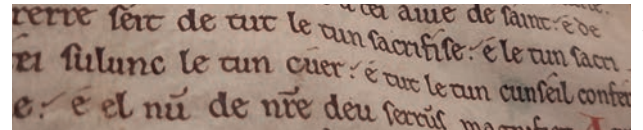 tei aiue de saint: é de
rerre seit de tut le tun sacrifise: é le tun sacri
ei sulunc le tun cuer: é tut le tun cunseil confer
e: é el nū de nr̄e deu serrūs